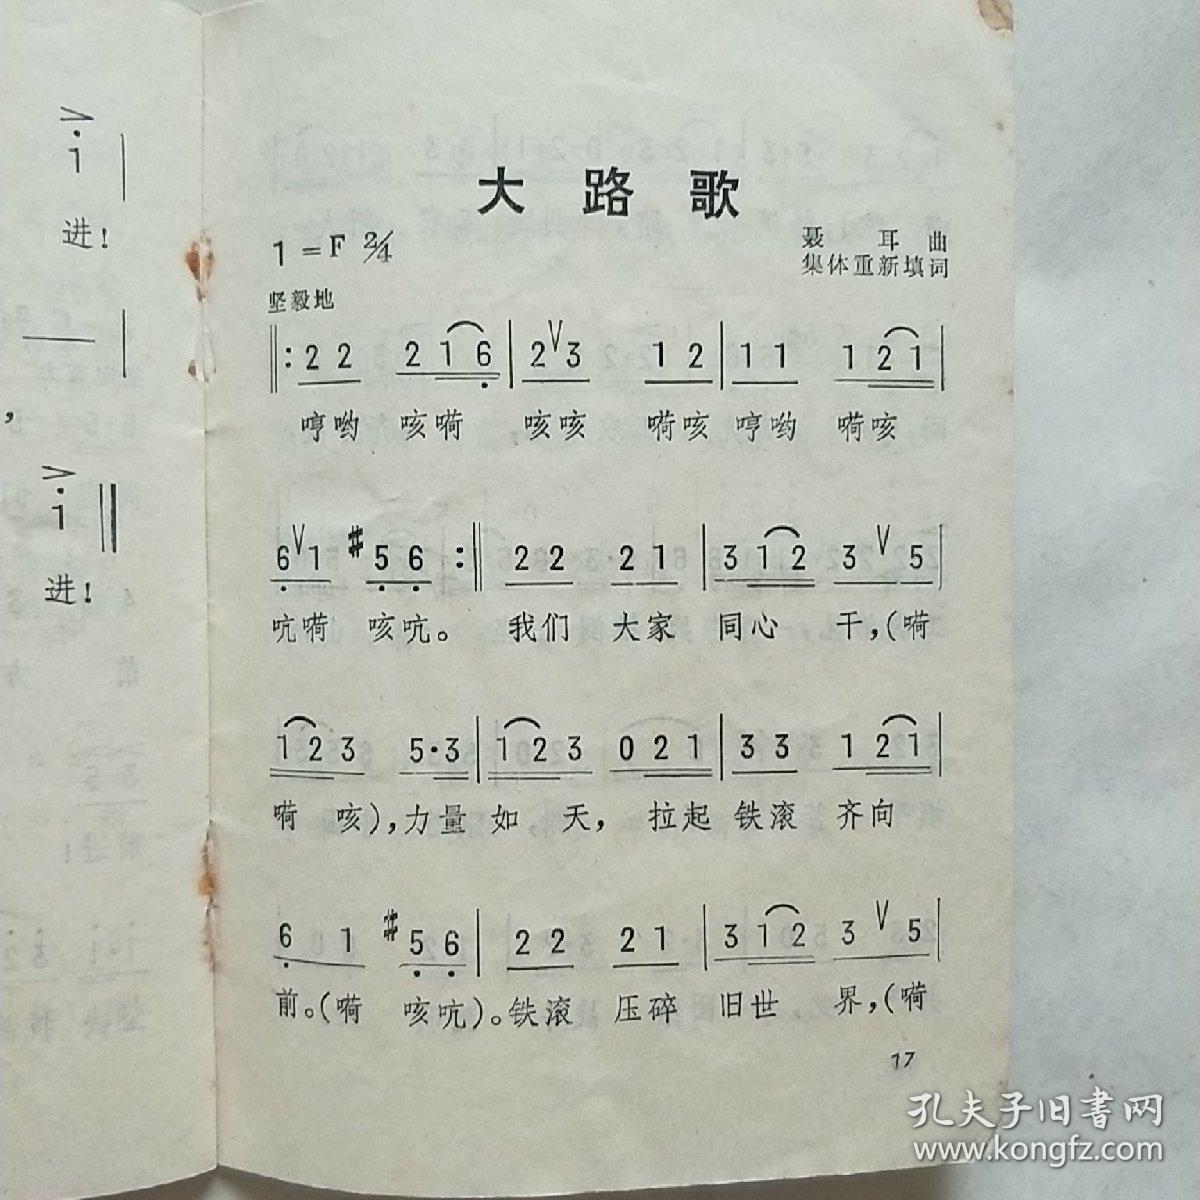 i
进!
，
i
进!
大路歌
1=F 2/4
聂耳曲
集体重新填词
坚毅地
‖: 2 2 2 1 6 | 2 V 3 1 2 | 1 1 1 2 1 |
哼哟 咳嗬 咳咳 嗬咳 哼哟 嗬咳
6 V 1 #5 6 :‖ 2 2 2 1 | 3 1 2 3 V 5 |
吭嗬 咳吭。 我们 大家 同心 干,(嗬
1 2 3 5·3 | 1 2 3 0 2 1 | 3 3 1 2 1 |
嗬 咳),力量 如 天, 拉起 铁滚 齐向
6 1 #5 6 | 2 2 2 1 | 3 1 2 3 V 5 |
前。(嗬 咳吭)。铁滚 压碎 旧世 界,(嗬
17
孔夫子旧书网
www.kongfz.com